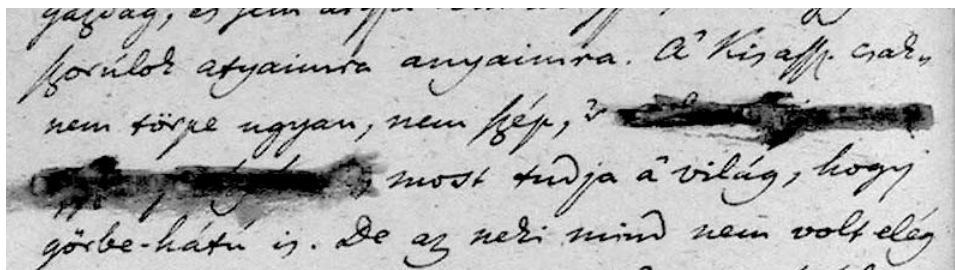 gazdag, és sem
szorúlok atyaimra anyaimra. A' Kisassz. csak-
nem törpe ugyan, nem szép, 's
most tudja a' világ, hogy
görbe-hátú is. De az neki mind nem volt elég